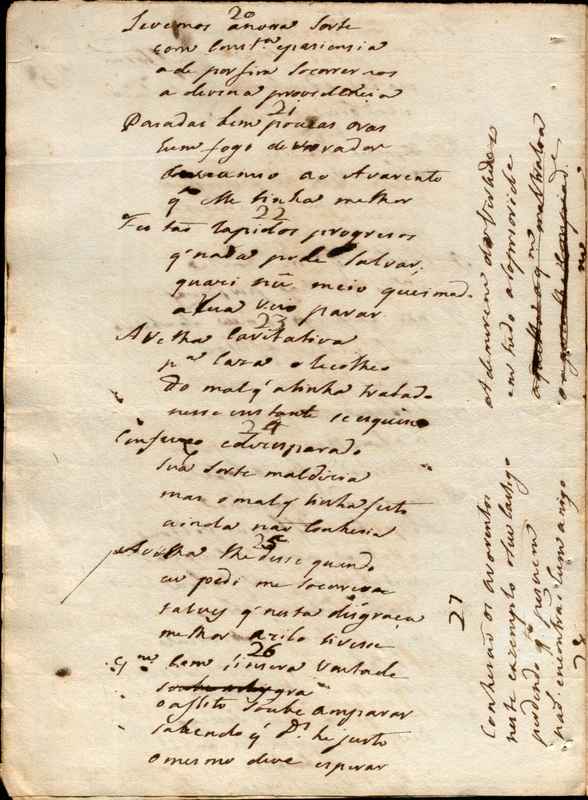 20
Levemos anoua sorte
com Const.ª epasiensia
ade porfim socorrernos
a devina providencia
21
Pasadas bem poucas oras
hum fogo devorador
ao Avarento
q̃ tinha melhor
22
Fes tão rapidos progresos
q̃ nada pode salvar,
quasi nũ meio queimad.
a Rua veio parar
23
A velha Caritativa
p.ª Caza o Recolheo
do mal q̃ atinha tratado
nesse instante se esquese
24
Confuzo edesesperado
sua sorte maldizia
mas o mal q̃ tinha feito
ainda não Conhesia
25
A velha lhe disse quando
eu pedi me socorrese
talves q̃ nesta disgraça
melhor azilo tivese
26
Q.m Com sinsera vontade
o aflito soube amparar
sabendo q̃ D.s he justo
o mesmo deve esperar
27
Conhesão os avarentos
neste exzemplo o seu Castigo
perdendo q.to posuem
não encontrão hum amigo
28
em tudo